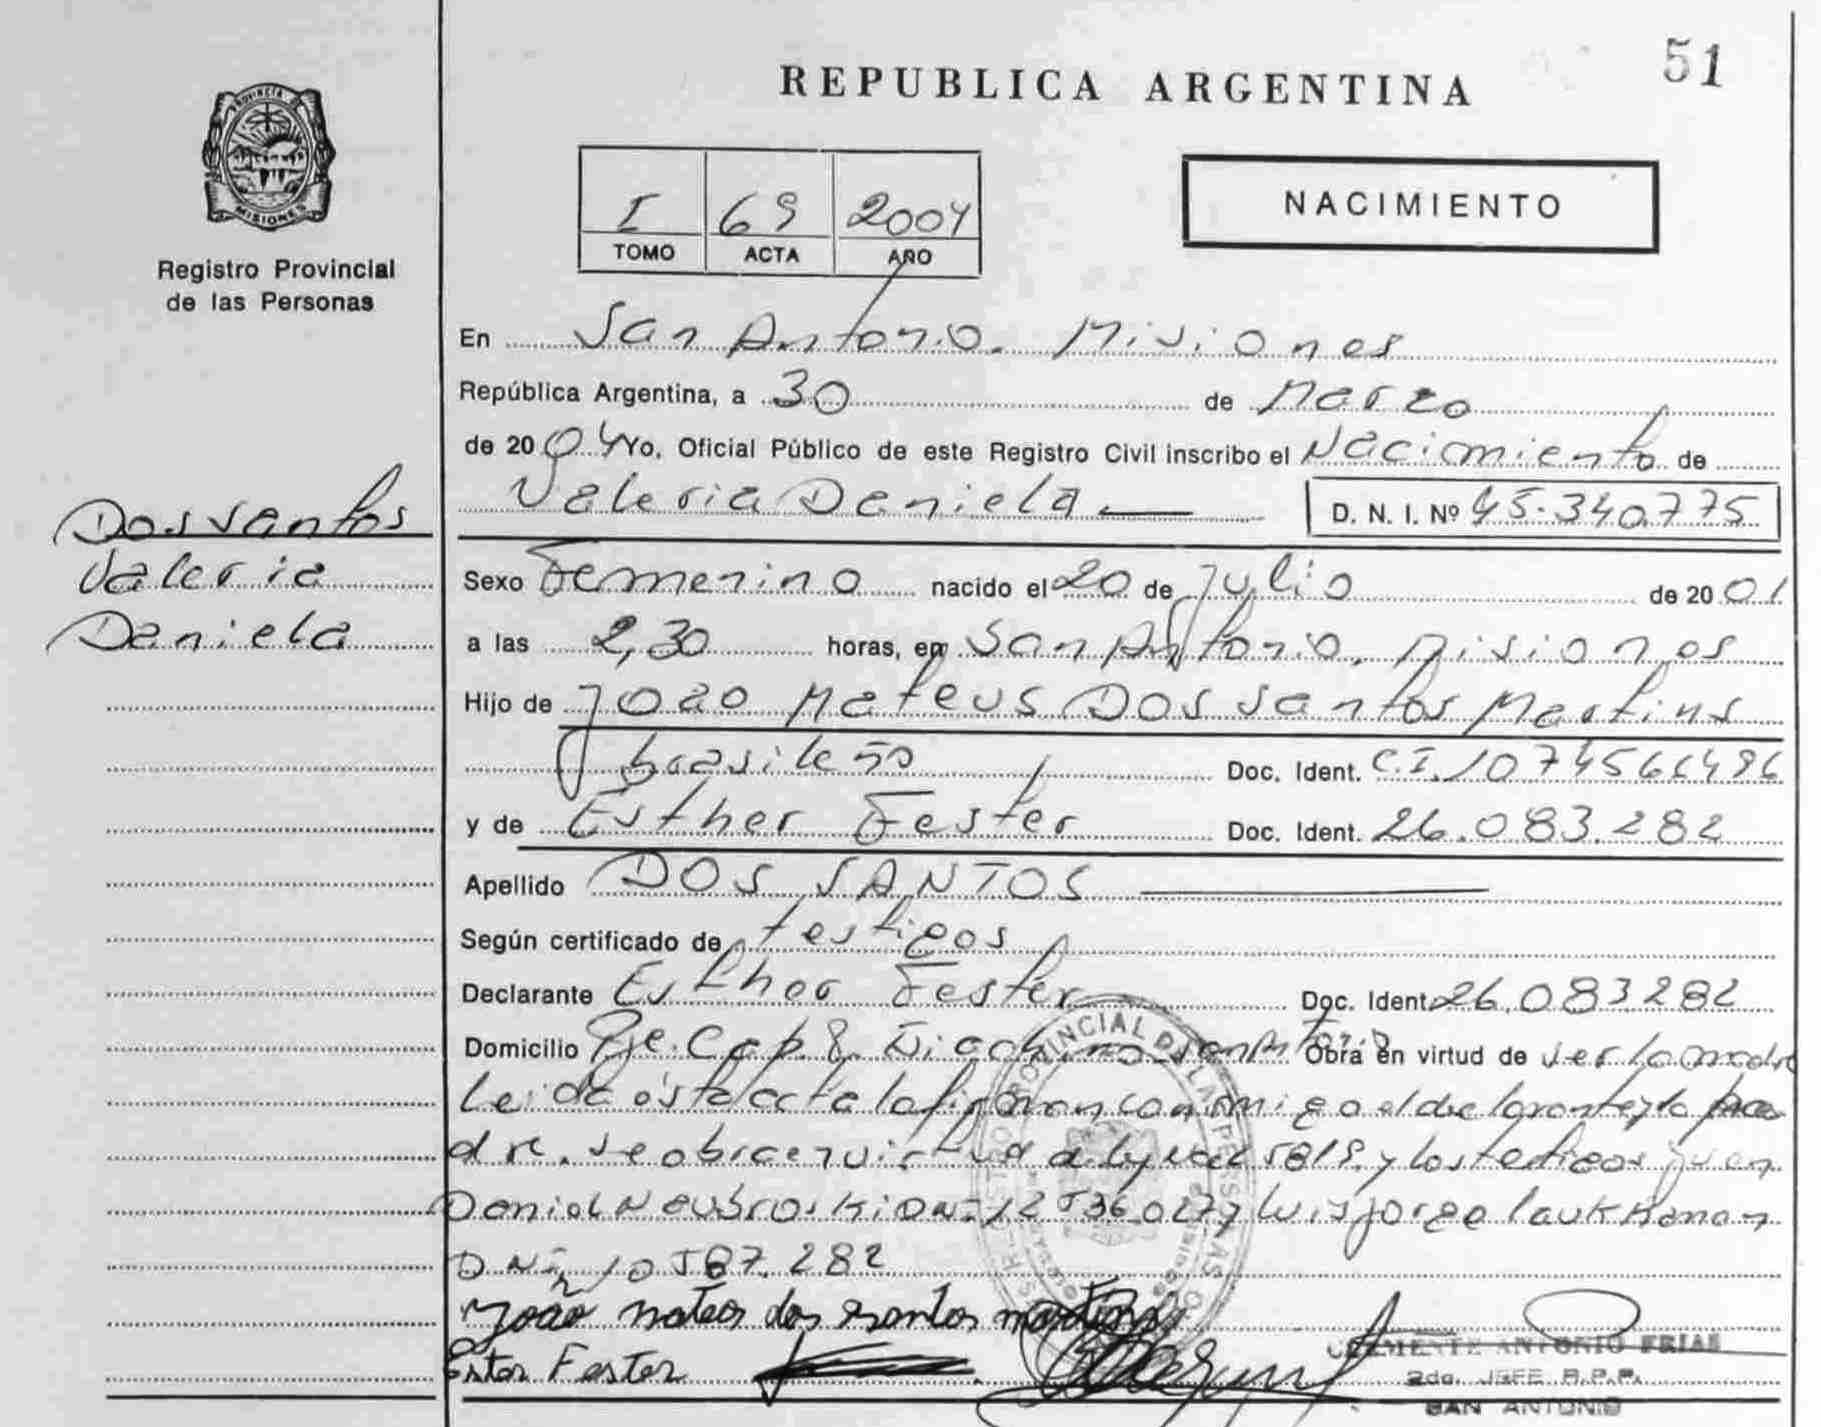 51
REPUBLICA ARGENTINA
PROVINCIA DE
MISIONES
Registro Provincial
de las Personas
I 69 2004
TOMO ACTA AÑO
NACIMIENTO
En San Antonio. Misiones
República Argentina, a 30 de Marzo
de 2004 Yo, Oficial Público de este Registro Civil inscribo el Nacimiento de
Valeria Daniela D. N. I. Nº 45.340.775
Dos santos
Valeria
Daniela
Sexo Femenino nacido el 20 de Julio de 2001
a las 2,30 horas, en San Antonio. Misiones
Hijo de Joao Mateus Dos santos Martins
brasileño Doc. Ident. C.I. 
y de Esther Fester Doc. Ident. 26.083.282
Apellido DOS SANTOS
Según certificado de testigos
Declarante Esther Fester Doc. Ident. 26.083282
Domicilio Pje. Cap. San Antonio Obra en virtud de ser la madre
Leida ésta acta la firman conmigo el declarante y lo pa
dre. se obra en virtud a ley Nac y los testigos juan
Daniel DNI. 12 536.027 y Luis jorge
DNI 10 587.282
João mateos dos santos martins
Ester Fester
CLEMENTE ANTONIO FRIAS
2do. JEFE R.P.P.
SAN ANTONIO